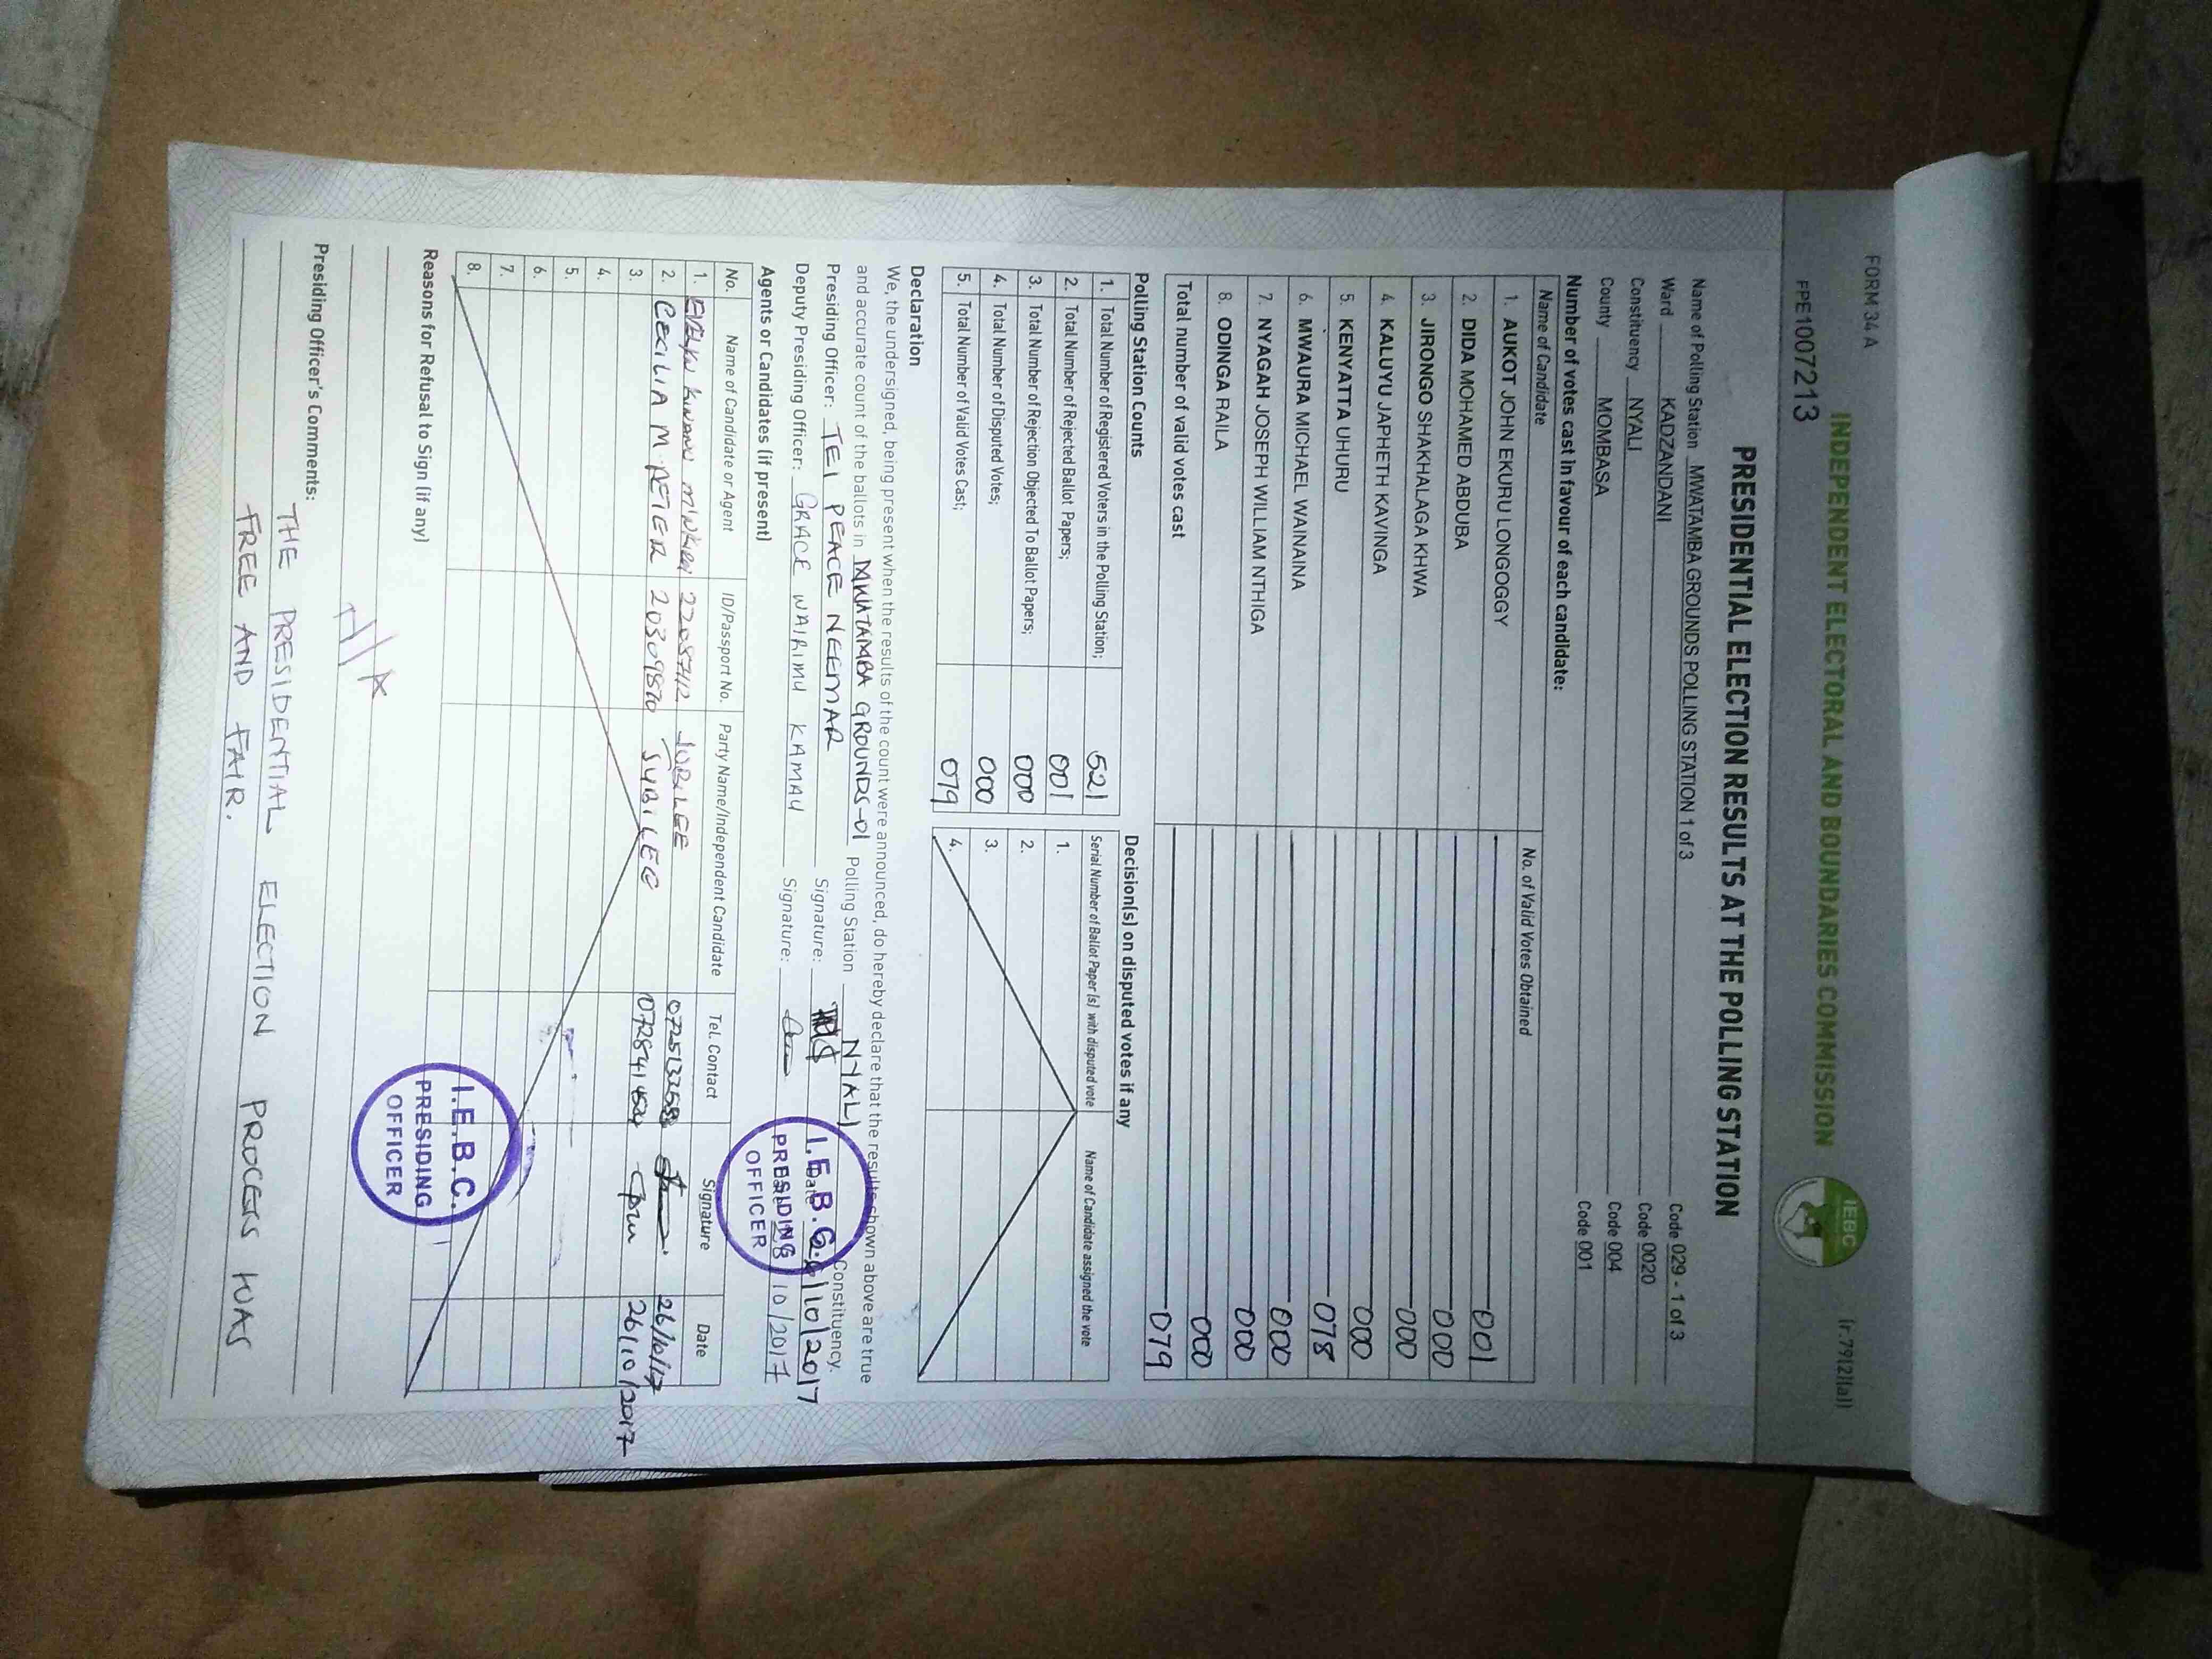 FORM 34 A
(r.79(2)(a))
INDEPENDENT ELECTORAL AND BOUNDARIES COMMISSION
IEBC
FPE1007213
PRESIDENTIAL ELECTION RESULTS AT THE POLLING STATION
Name of Polling Station MWATAMBA GROUNDS POLLING STATION 1 of 3 Code 029 - 1 of 3
Ward KADZANDANI Code 0020
Constituency NYALI Code 004
County MOMBASA Code 001
Number of votes cast in favour of each candidate:
Name of Candidate No. of Valid Votes Obtained
1. AUKOT JOHN EKURU LONGOGGY 001
2. DIDA MOHAMED ABDUBA 000
3. JIRONGO SHAKHALAGA KHWA 000
4. KALUYU JAPHETH KAVINGA 000
5. KENYATTA UHURU 078
6. MWAURA MICHAEL WAINAINA 000
7. NYAGAH JOSEPH WILLIAM NTHIGA 000
8. ODINGA RAILA 000
Total number of valid votes cast 079
Polling Station Counts
1. Total Number of Registered Voters in the Polling Station; 521
2. Total Number of Rejected Ballot Papers; 001
3. Total Number of Rejection Objected To Ballot Papers; 000
4. Total Number of Disputed Votes; 000
5. Total Number of Valid Votes Cast; 079
Decision(s) on disputed votes if any
Serial Number of Ballot Paper (s) with disputed vote Name of Candidate assigned the vote
1.
2.
3.
4.
Declaration
We, the undersigned, being present when the results of the count were announced, do hereby declare that the results shown above are true
and accurate count of the ballots in MWATAMBA GROUNDS-01 Polling Station NYALI Constituency.
Presiding Officer: TEI PEACE NEEMAR Signature: Date /10/2017
Deputy Presiding Officer: GRACE WAIRIMU KAMAU Signature: 10/2017
I.E.B.C.
PRESIDING
OFFICER
Agents or Candidates (if present)
No. Name of Candidate or Agent ID/Passport No. Party Name/Independent Candidate Tel. Contact Signature Date
1. JUBILEE 26/10/17
2. CECILIA M. PETER 20309870 JUBILEE 26/10/2017
3.
4.
5.
6.
7.
8.
I.E.B.C.
PRESIDING
OFFICER
Reasons for Refusal to Sign (if any)
Presiding Officer's Comments:
THE PRESIDENTIAL ELECTION PROCESS WAS
FREE AND FAIR.